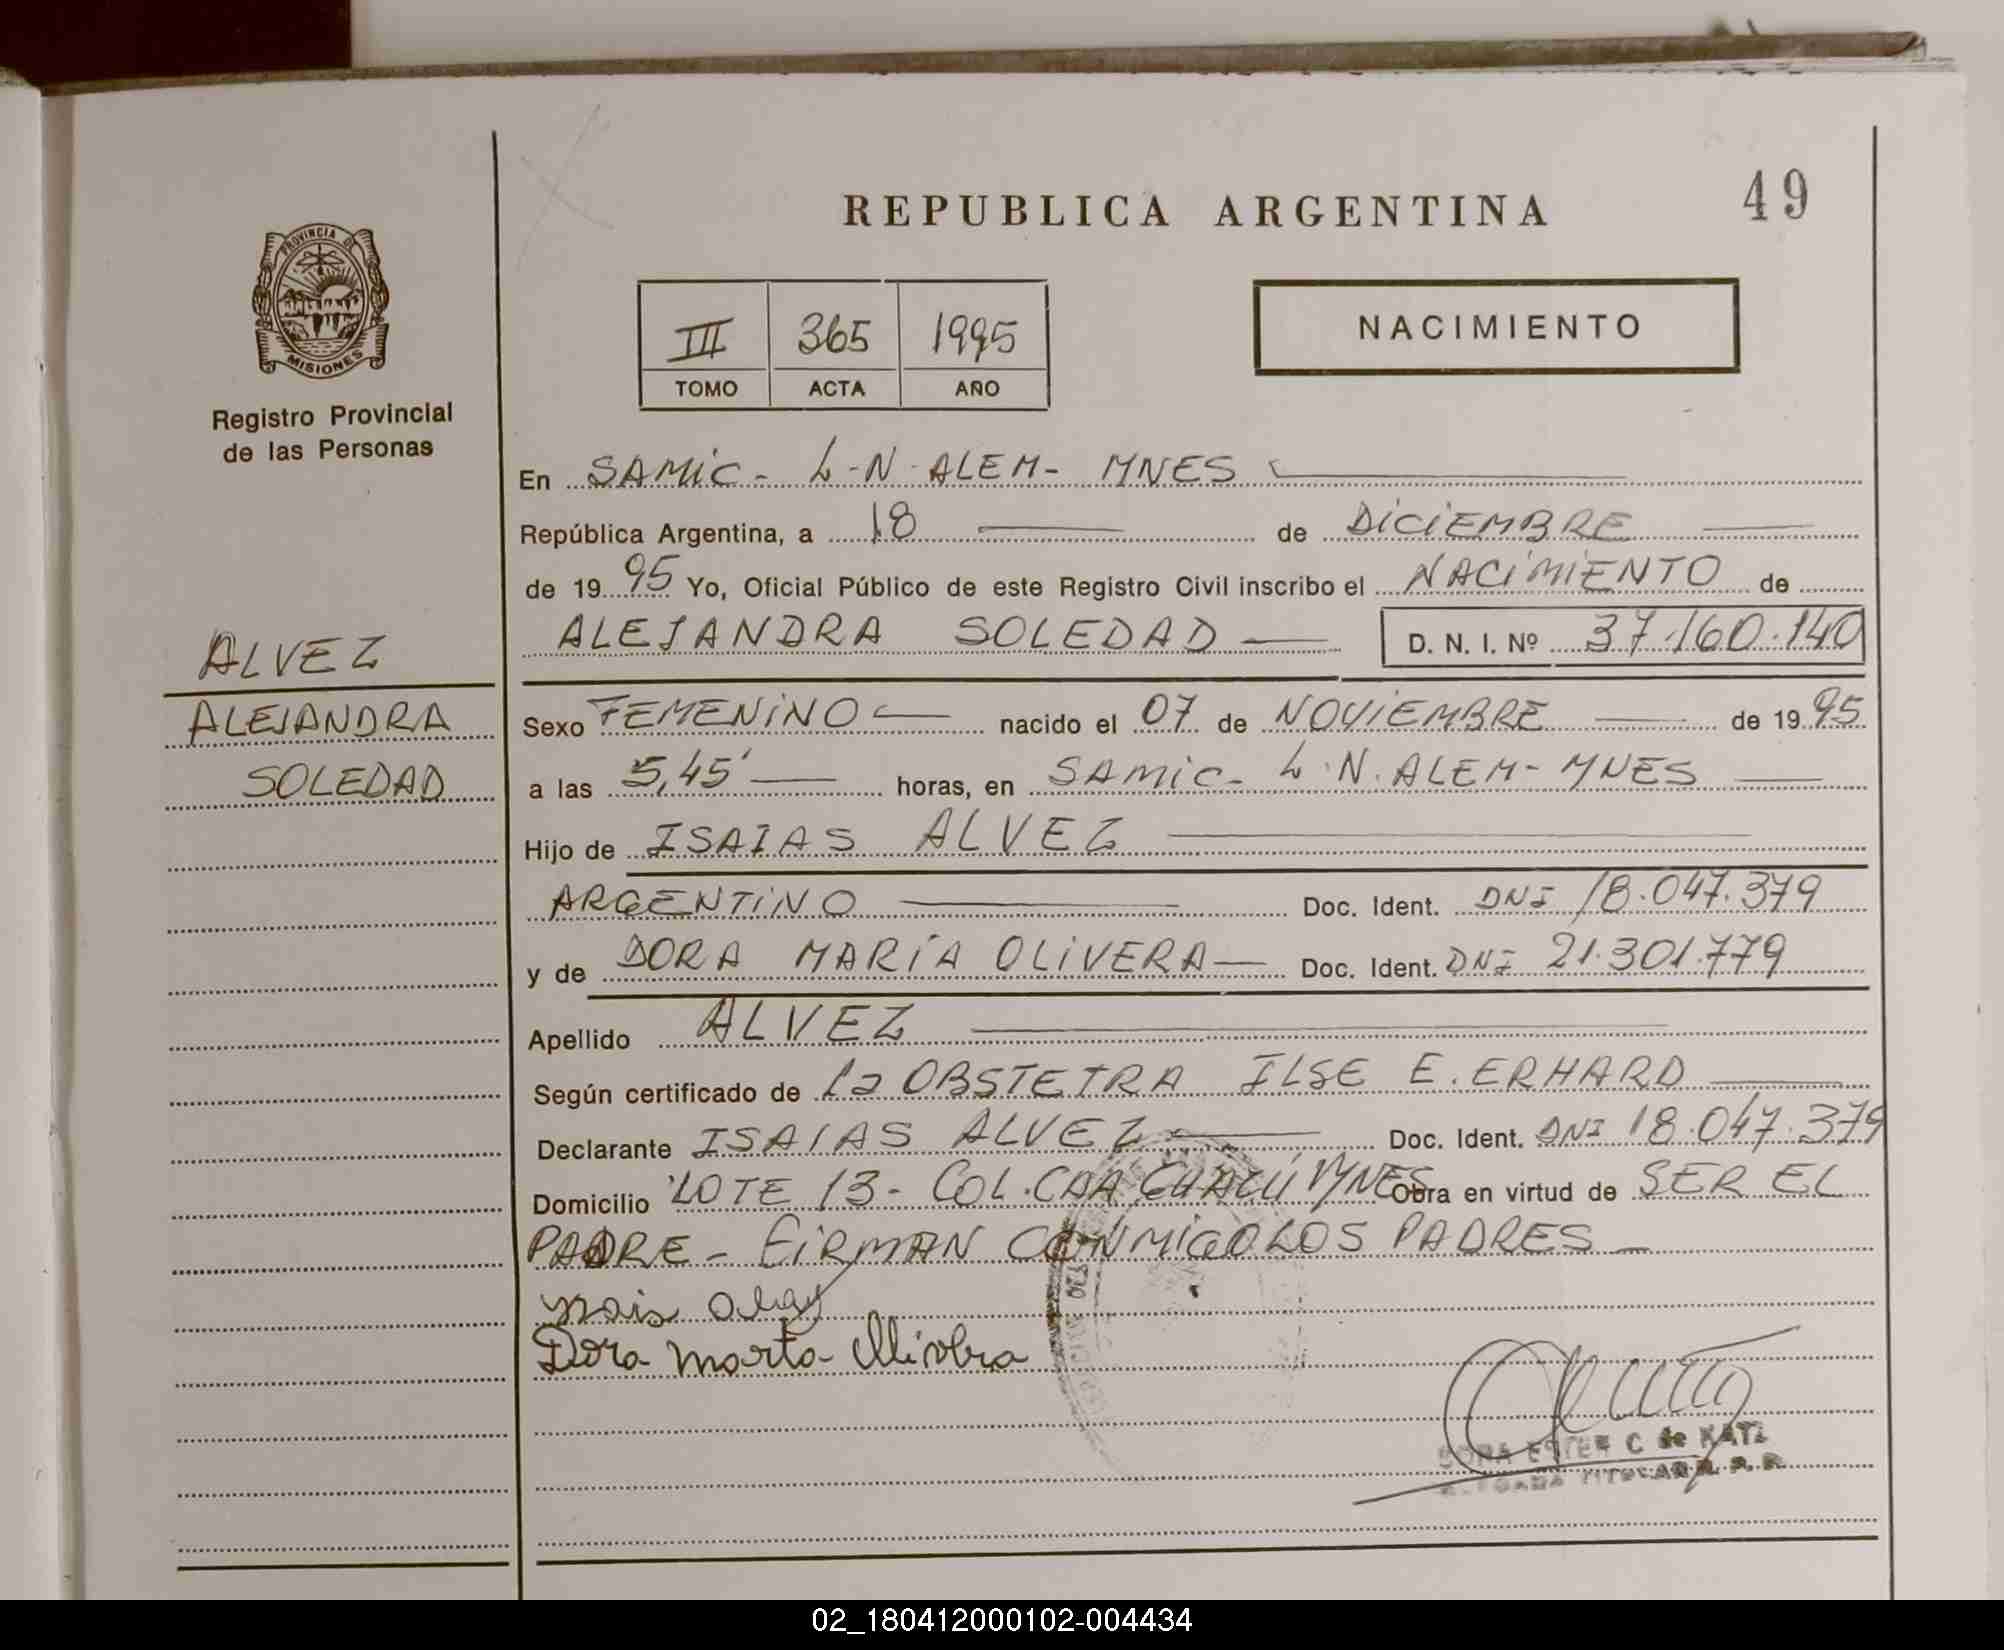 REPUBLICA ARGENTINA
49
PROVINCIA DE
MISIONES
Registro Provincial
de las Personas
III 365 1995
TOMO ACTA AÑO
NACIMIENTO
En SAMIC - L-N-ALEM- MNES
República Argentina, a 18 de DICIEMBRE
de 1995 Yo, Oficial Público de este Registro Civil inscribo el NACIMIENTO de
ALEJANDRA SOLEDAD D. N. I. Nº 37.160.140
ALVEZ
ALEJANDRA
SOLEDAD
Sexo FEMENINO nacido el 07 de NOVIEMBRE de 1995
a las 5,45' horas, en SAMIC- L.N.ALEM- MNES
Hijo de ISAIAS ALVEZ
ARGENTINO Doc. Ident. DNI 18.047.379
y de DORA MARÍA OLIVERA Doc. Ident. DNI 21.301.779
Apellido ALVEZ
Según certificado de la OBSTETRA ILSE E. ERHARD
Declarante ISAIAS ALVEZ Doc. Ident. DNI 18.047.379
Domicilio LOTE 13- COL. CAA GUAZÚ MNES Obra en virtud de SER EL
PADRE - FIRMAN CONMIGO LOS PADRES -
Dora
C de KATZ
TITULAR R. P. P.
02_180412000102-004434